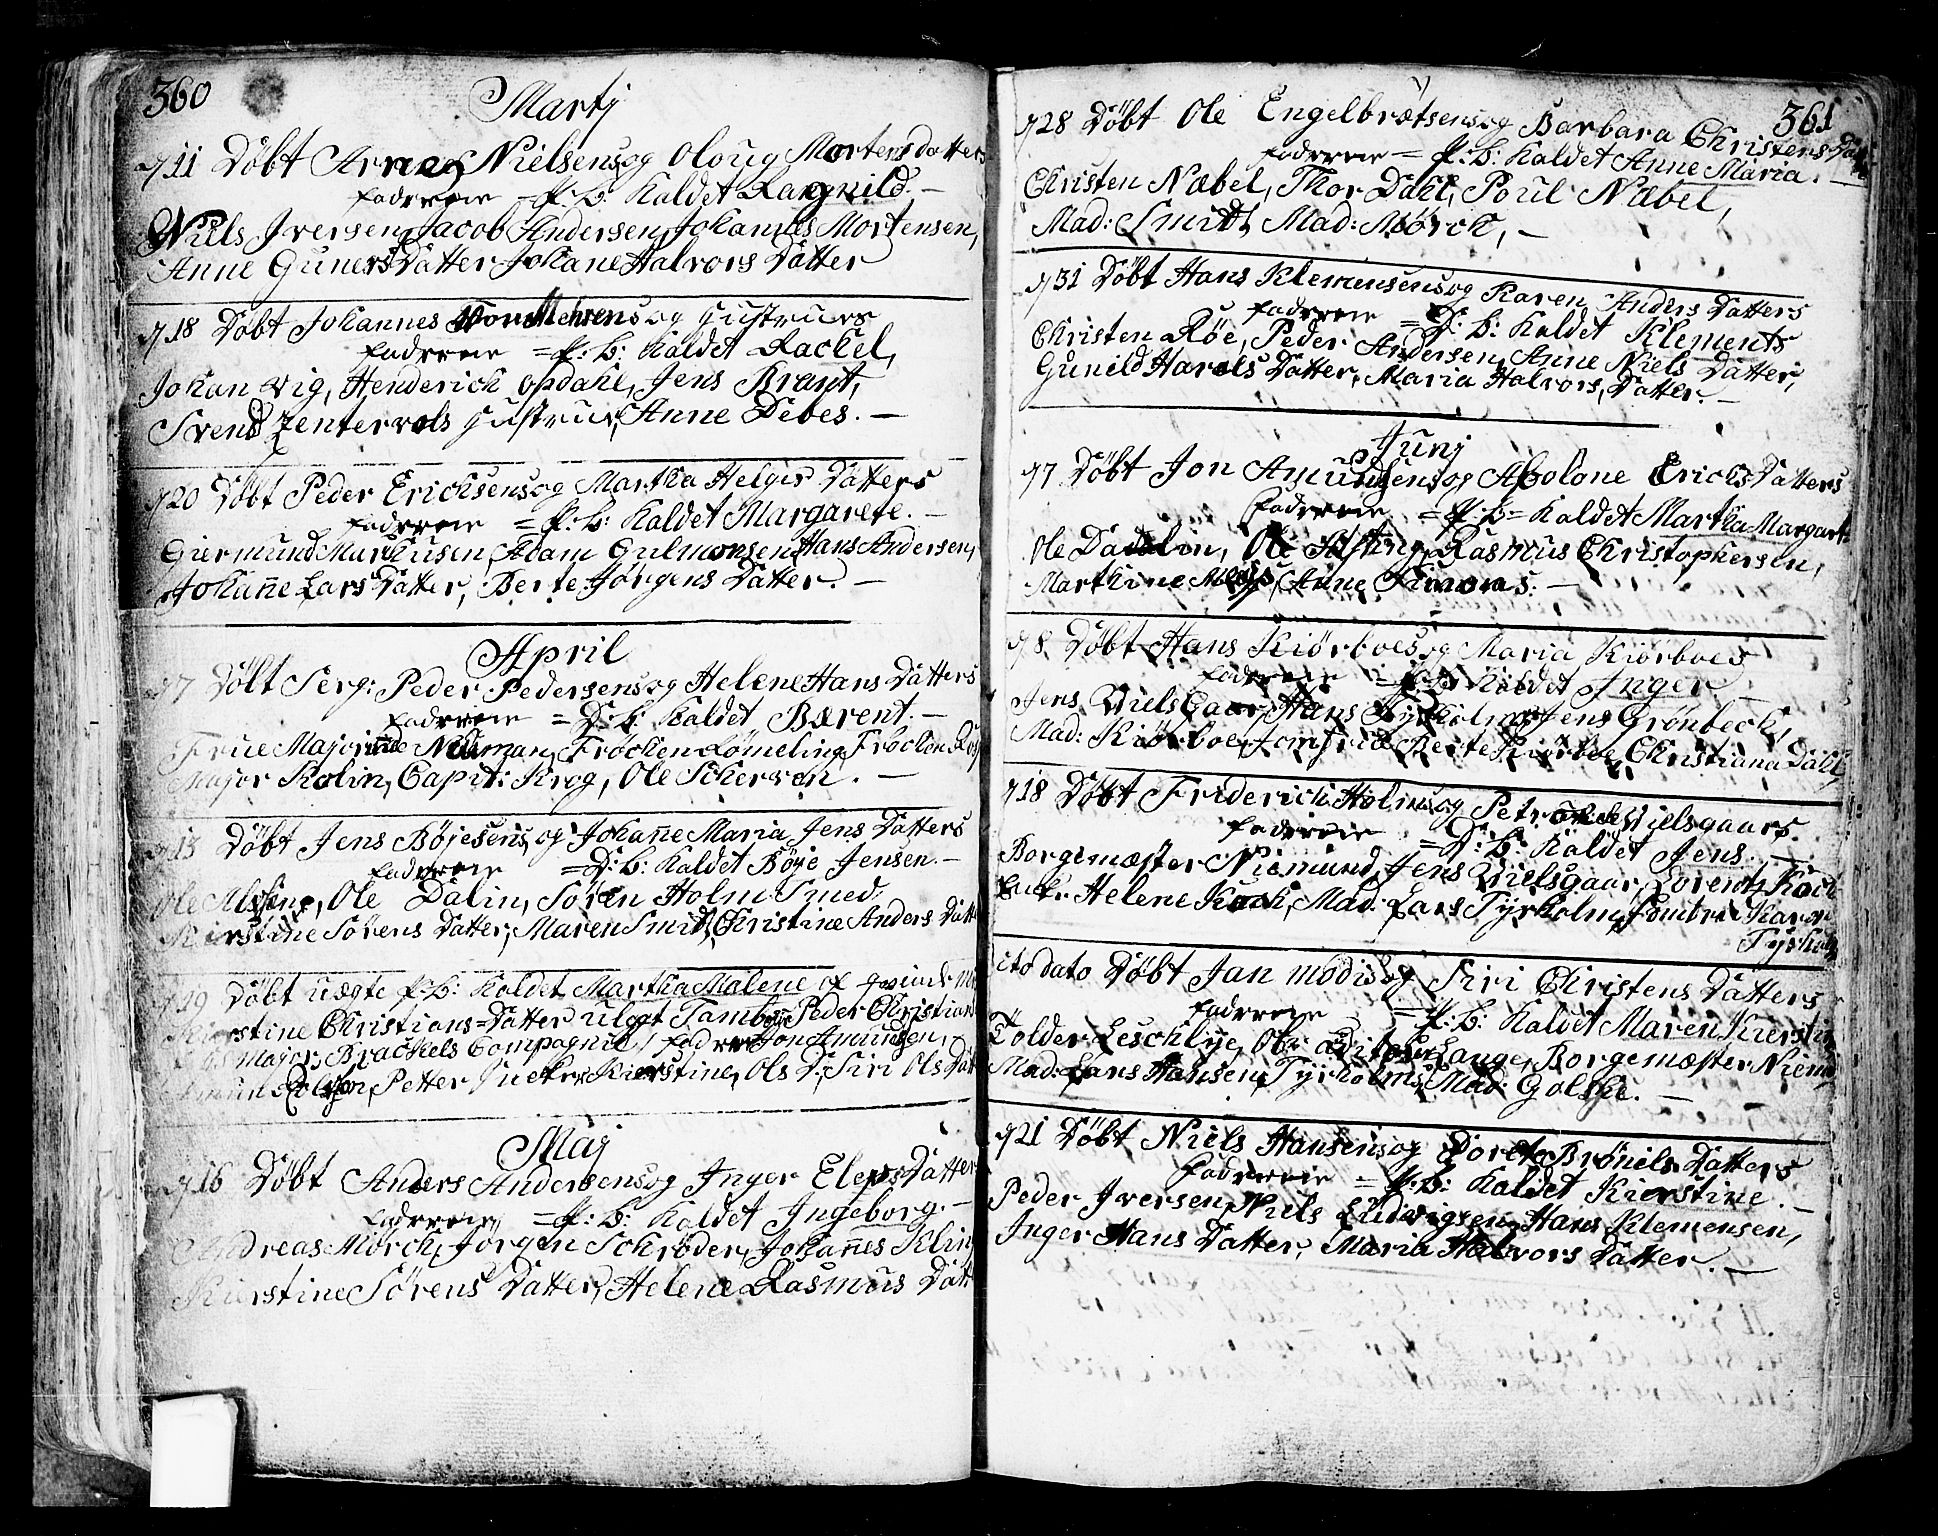 360
Martj
d 11 Døbt Arnes Nielsens og Oloug Mortens datters
fadderne = P: b: Kaldet Ragnild. —
Niels Iversen, Jacob Andersen, Johannes Mortensen,
Anne Guners Datter Johane Halvors Datter
d 18 Døbt Johannes von Mehrens og Hustrues
fadderne = P: b: Kaldet Rachel,
Johan Vig, Henderich opdahl, Jens Brant,
Svend Hustrue, Anne Debes. —
d 20 Døbt Peder Erichsens og Martha Helges Datters
fadderne = P: b: Kaldet Margarete. —
Giermund Markusen, Adam Gulmonsen, Hans Andersen,
Johanne Lars Datter, Berte Jørgens Datter. —
April
d 7 Døbt Serg: Peder Pedersens og Helene Hans Datters
fadderne = D: b: Kaldet Bærent. —
Frue Majorinde Neuman, Frøcken Lømeling, Frøcken
Major Kolin, Capit: Krog, Ole Scherven. —
d 13 Døbt Jens Bøjesens og Johanne Maria Jens Datters
fadderne = D: b: Kaldet Bøje Jensen. —
Ole Ole Dalin, Søren Holm Smed,
Kierstine Sørens Datter, Maren Smids, Christine Anders Datt
d 19 Døbt uægte P: b: Kaldet Martha Malene af qvinde
Kierstine Christians = Datter udlagt Tambour Peder Christian
Major Brackels Compagnie, fadderne Jon Amundsen,
Amund Petter Kierstine Ols D: Siri Ols Dat
Maj
d 16 Døbt Anders Andersens og Inger Eleps Datter
fadderne = P: b: Kaldet Ingeborg. —
Andreas Mørch, Jørgen Schrøder, Johannes Klin
Kierstine Sørens Datter, Helene Rasmus Datt
361
d 28 Døbt Ole Engelbrætsens og Barbara Christens Datt
fadderne = P: b: Kaldet Anne Maria. —
Christen Næbel, Thor Dahl, Poul Næbel,
Mad: Smidt, Mad: Mørch, —
d 31 Døbt Hans Klemensens og Karen Anders Datters
fadderne = D: b: Kaldet Klements
Christen Røe, Peder Andersen, Anne Niels Datter,
Gunild Harels Datter, Maria Halvors, Datter. —
Junj
d 7 Døbt Jon Amundsens og Abolone Erichs Datters
fadderne = P: b = Kaldet Martha Margart
Ole Dadalin, Ole Alsting, Rasmus Christophersen,
Marthine Anne Simons. —
d 8 Døbt Hans Kiørboes og Maria Kiørboes
fadderne = P: b: Kaldet Inger —
Jens Nielsgaar, Hans Tyrholms, Jens Grønbeck,
Mad: Kiørboe, Jomfrue Berte Kiørboe, Christiana Dahl,
d 18 Døbt Friderich Holms og Petronele Nielsgaars.
fadderne = D: b: Kaldet Jens. —
Borgemæster Niemund, Jens Nielsgaar, Lorentz Koch
Enke: Helene Koch, Mad: Lars Tyrholm, Jomfrue Karen
Tyrholm
ito dato Døbt Jan modis og Siri Christens Datters
fadderne = P: b: Kaldet Maren Kierstin
Tolder Leschlye, Ole Lange, Borgemæster Niem
Mad: Lars Hansen, Tyrholms, Mad: Golske. —
d 21 Døbt Niels Hansens og Dorete Brønils Datters
fadderne = P: b: Kaldet Kierstine. —
Peder Iversen, Niels Ludvigsen, Hans Klemensen,
Inger Hans Datter, Maria Halvors Datter. —